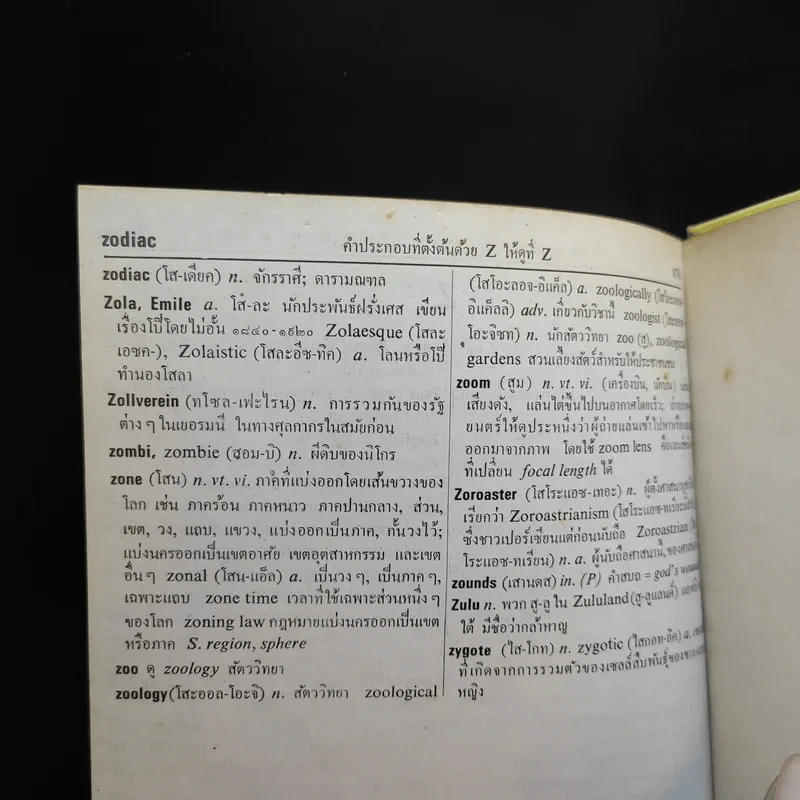 zodiac
คำประกอบที่ตั้งต้นด้วย Z ให้ดูที่ Z
zodiac (โส-เดี๋ยค) n. จักรราศี; ดารามณฑล
Zola, Emile a. โส-ละ นักประพันธ์ฝรั่งเศส เขียน
เรื่องโป๊โดยไม่อั้น ๑๘๔๐-๑๙๒๐ Zolaesque (โสละ
เอซค-), Zolaistic (โสละอีซ-ทิค) a. โลนหรือโป๊
ทำนองโสลา
Zollverein (ทโซล-เฟะไรน) n. การรวมกันของรัฐ
ต่างๆ ในเยอรมนี ในทางศุลกากรในสมัยก่อน
zombi, zombie (ซอม-บิ) n. ผีดิบของนิโกร
zone (โสน) n. vt. vi. ภาคที่แบ่งออกโดยเส้นขวางของ
โลก เช่น ภาคร้อน ภาคหนาว ภาคปานกลาง, ส่วน,
เขต, วง, แถบ, แขวง, แบ่งออกเป็นภาค, กั้นวงไว้;
แบ่งนครออกเป็นเขตอาศัย เขตอุตสาหกรรม และเขต
อื่นๆ zonal (โสน-แอ็ล) a. เป็นวงๆ, เป็นภาคๆ,
เฉพาะแถบ zone time เวลาที่ใช้เฉพาะส่วนหนึ่งๆ
ของโลก zoning law กฎหมายแบ่งนครออกเป็นเขต
หรือภาค S. region, sphere
zoo ดู zoology สัตววิทยา
zoology (โสะออล-โอะจิ) n. สัตววิทยา zoological
(โสโอะลอจ-อิแค็ล) a. zoologically
อิแค็ลลิ) adv. เกี่ยวกับวิชานี้ zoologist
โอะจิซท) n. นักสัตววิทยา zoo (สู), zoological
gardens สวนเลี้ยงสัตว์สำหรับให้ประชาชนชม
zoom (สูม) n. vt. vi. (เครื่องบิน, นักบิน)
เสียงดัง, แล่นไต่ขึ้นไปบนอากาศโดยเร็ว;
ยนตร์ให้ดูประหนึ่งว่าผู้ถ่ายแล่นเข้าไปหาหรือ
ออกมาจากภาพ โดยใช้ zoom lens คือ
ที่เปลี่ยน focal length ได้
Zoroaster (โสโรแอซ-เทอะ) n. ผู้ตั้งศาสนา
เรียกว่า Zoroastrianism (โสโรแอซ-
ซึ่งชาวเปอร์เซียนแต่ก่อนนับถือ Zoroastrian
โรแอซ-ทเรียน) n. a. ผู้นับถือศาสนานี้,
zounds (เสานดส) in. (P) คำสบถ = god's
Zulu n. พวก สู-ลู ใน Zululand (สู-ลูแลนด์)
ใต้ มีชื่อว่ากล้าหาญ
zygote (ไส-โกท) n. zygotic (ไสกอท-อิค) a.
ที่เกิดจากการรวมตัวของเซลล์สืบพันธุ์ของ
หญิง